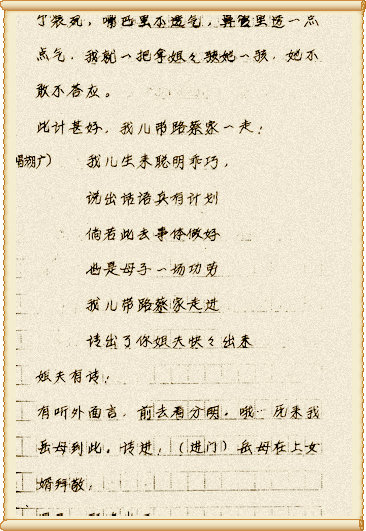 尔装死，嘴巴里不透气，鼻管里透一点
点气，我就一把拿姐々骇她一骇，她不
敢不答应。
此计甚好，我儿带路蔡家一走：
我儿生来聪明乖巧，
说出话语真有计划
倘若此去事体做好
也是母子一场功劳
我儿带路蔡家走进
请出了你姐夫快々出来
姐夫有请：
有听外面言，前去看分明。哦！历来我
岳母到此。请进，（进门）岳母在上女
婿拜敬。